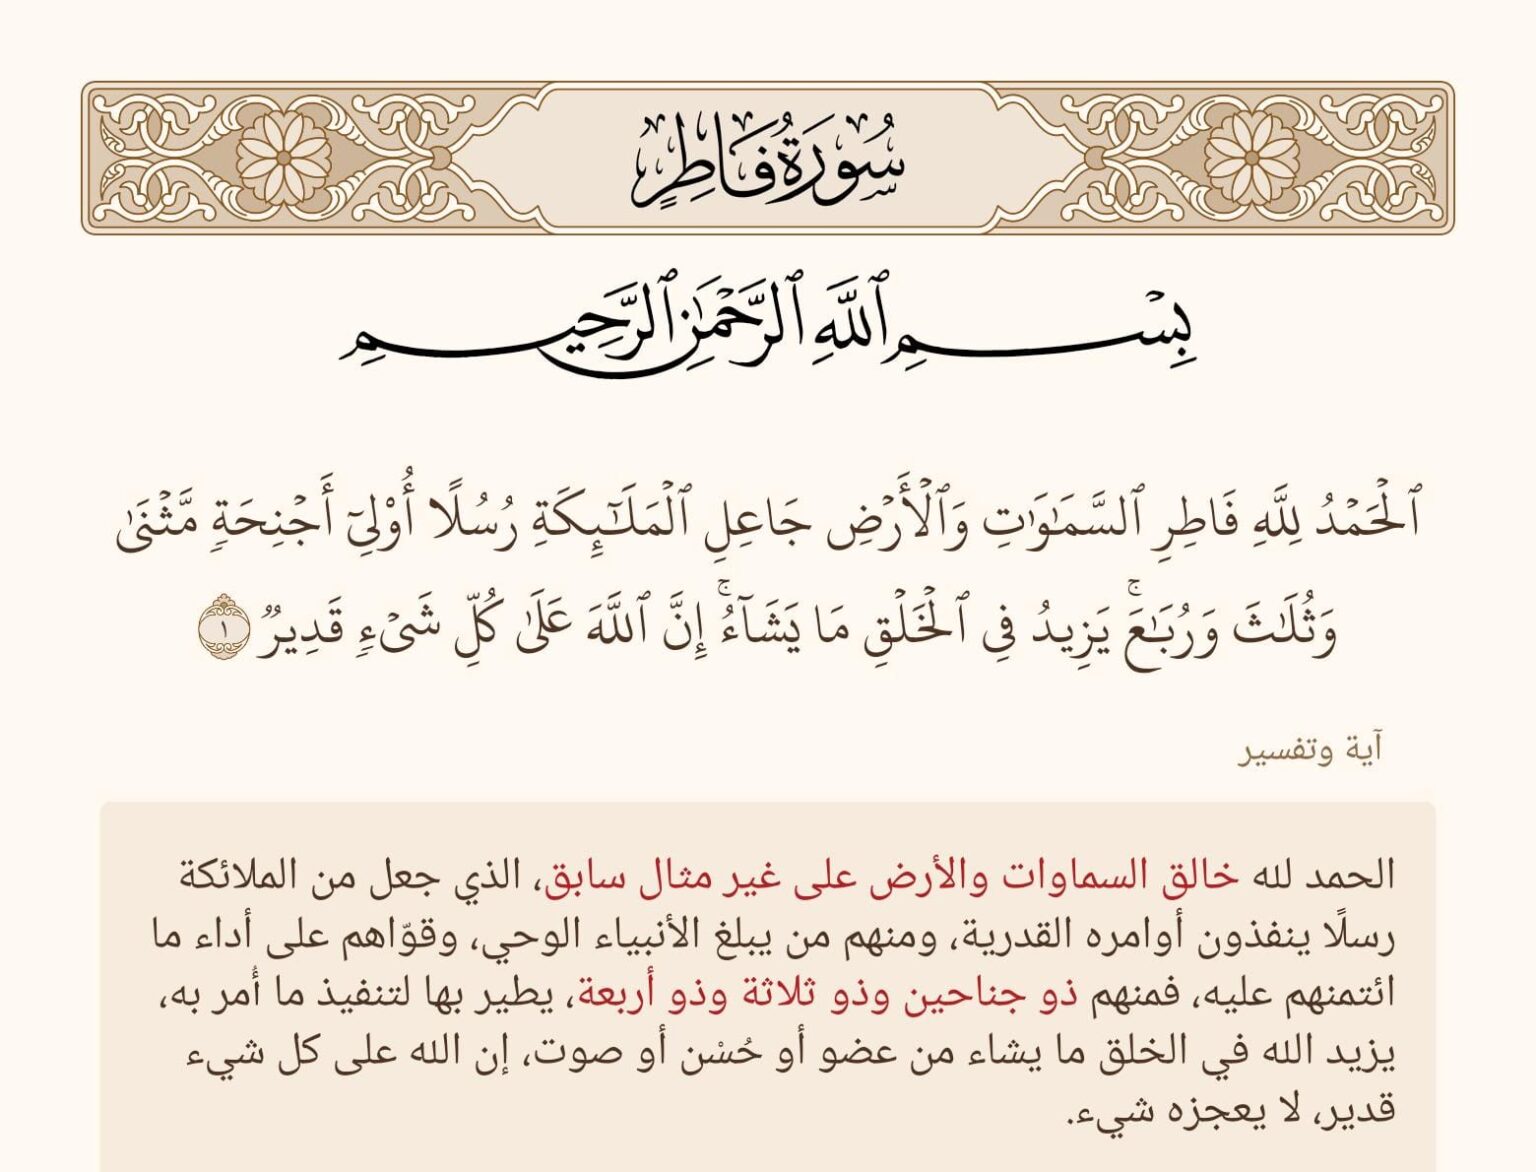 سُورَةُ فَاطِرٍ
بِسْمِ ٱللَّهِ ٱلرَّحْمَٰنِ ٱلرَّحِيمِ
ٱلْحَمْدُ لِلَّهِ فَاطِرِ ٱلسَّمَٰوَٰتِ وَٱلْأَرْضِ جَاعِلِ ٱلْمَلَٰٓئِكَةِ رُسُلًا أُو۟لِىٓ أَجْنِحَةٍ مَّثْنَىٰ
وَثُلَٰثَ وَرُبَٰعَۚ يَزِيدُ فِي ٱلْخَلْقِ مَا يَشَآءُۚ إِنَّ ٱللَّهَ عَلَىٰ كُلِّ شَىْءٍ قَدِيرٌ ١
آية وتفسير
الحمد لله خالق السماوات والأرض على غير مثال سابق، الذي جعل من الملائكة
رسلًا ينفذون أوامره القدرية، ومنهم من يبلغ الأنبياء الوحي، وقوّاهم على أداء ما
ائتمنهم عليه، فمنهم ذو جناحين وذو ثلاثة وذو أربعة، يطير بها لتنفيذ ما أُمر به،
يزيد الله في الخلق ما يشاء من عضو أو حُسْن أو صوت، إن الله على كل شيء
قدير، لا يعجزه شيء.